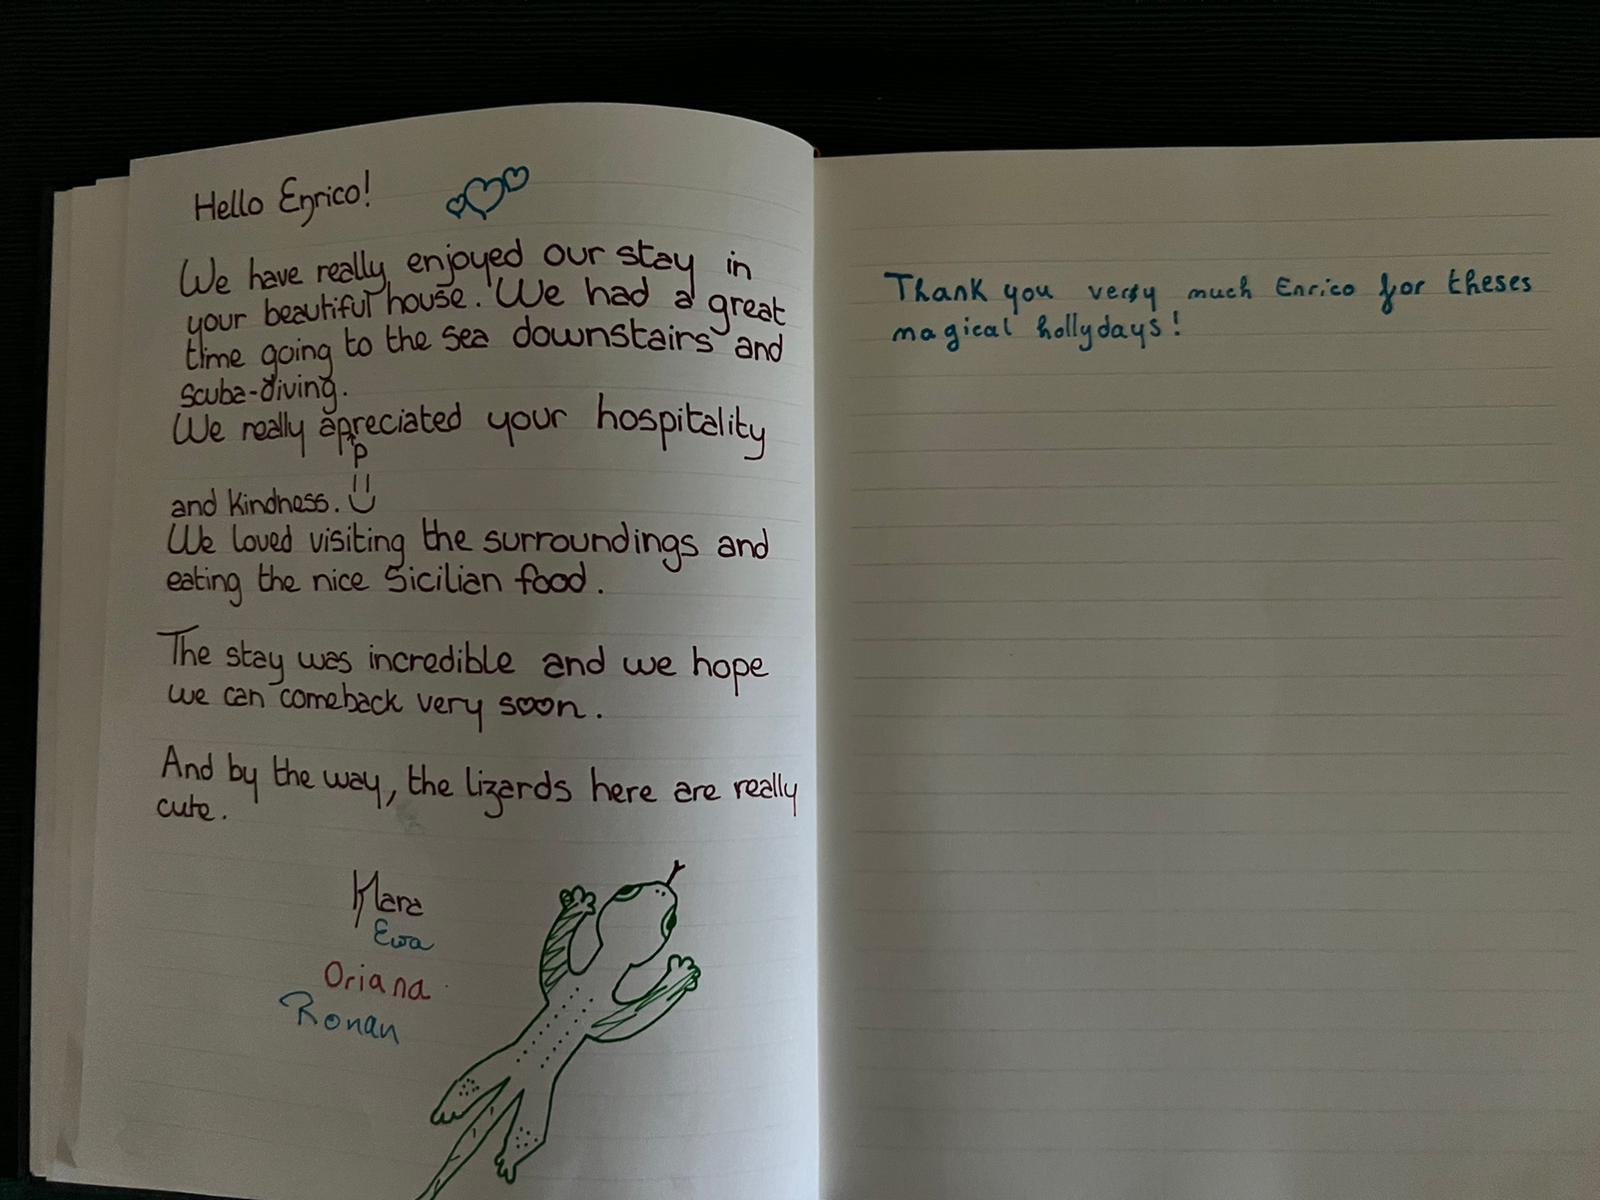 Hello Enrico!
We have really enjoyed our stay in
your beautiful house. We had a great
time going to the sea downstairs and
scuba-diving.
We really apreciated your hospitality
p
and kindness.
We loved visiting the surroundings and
eating the nice Sicilian food.
The stay was incredible and we hope
we can comeback very soon.
And by the way, the lizards here are really
cute.
Klara
Ewa
Oriana
Ronan
Thank you very much Enrico for theses
magical hollydays!